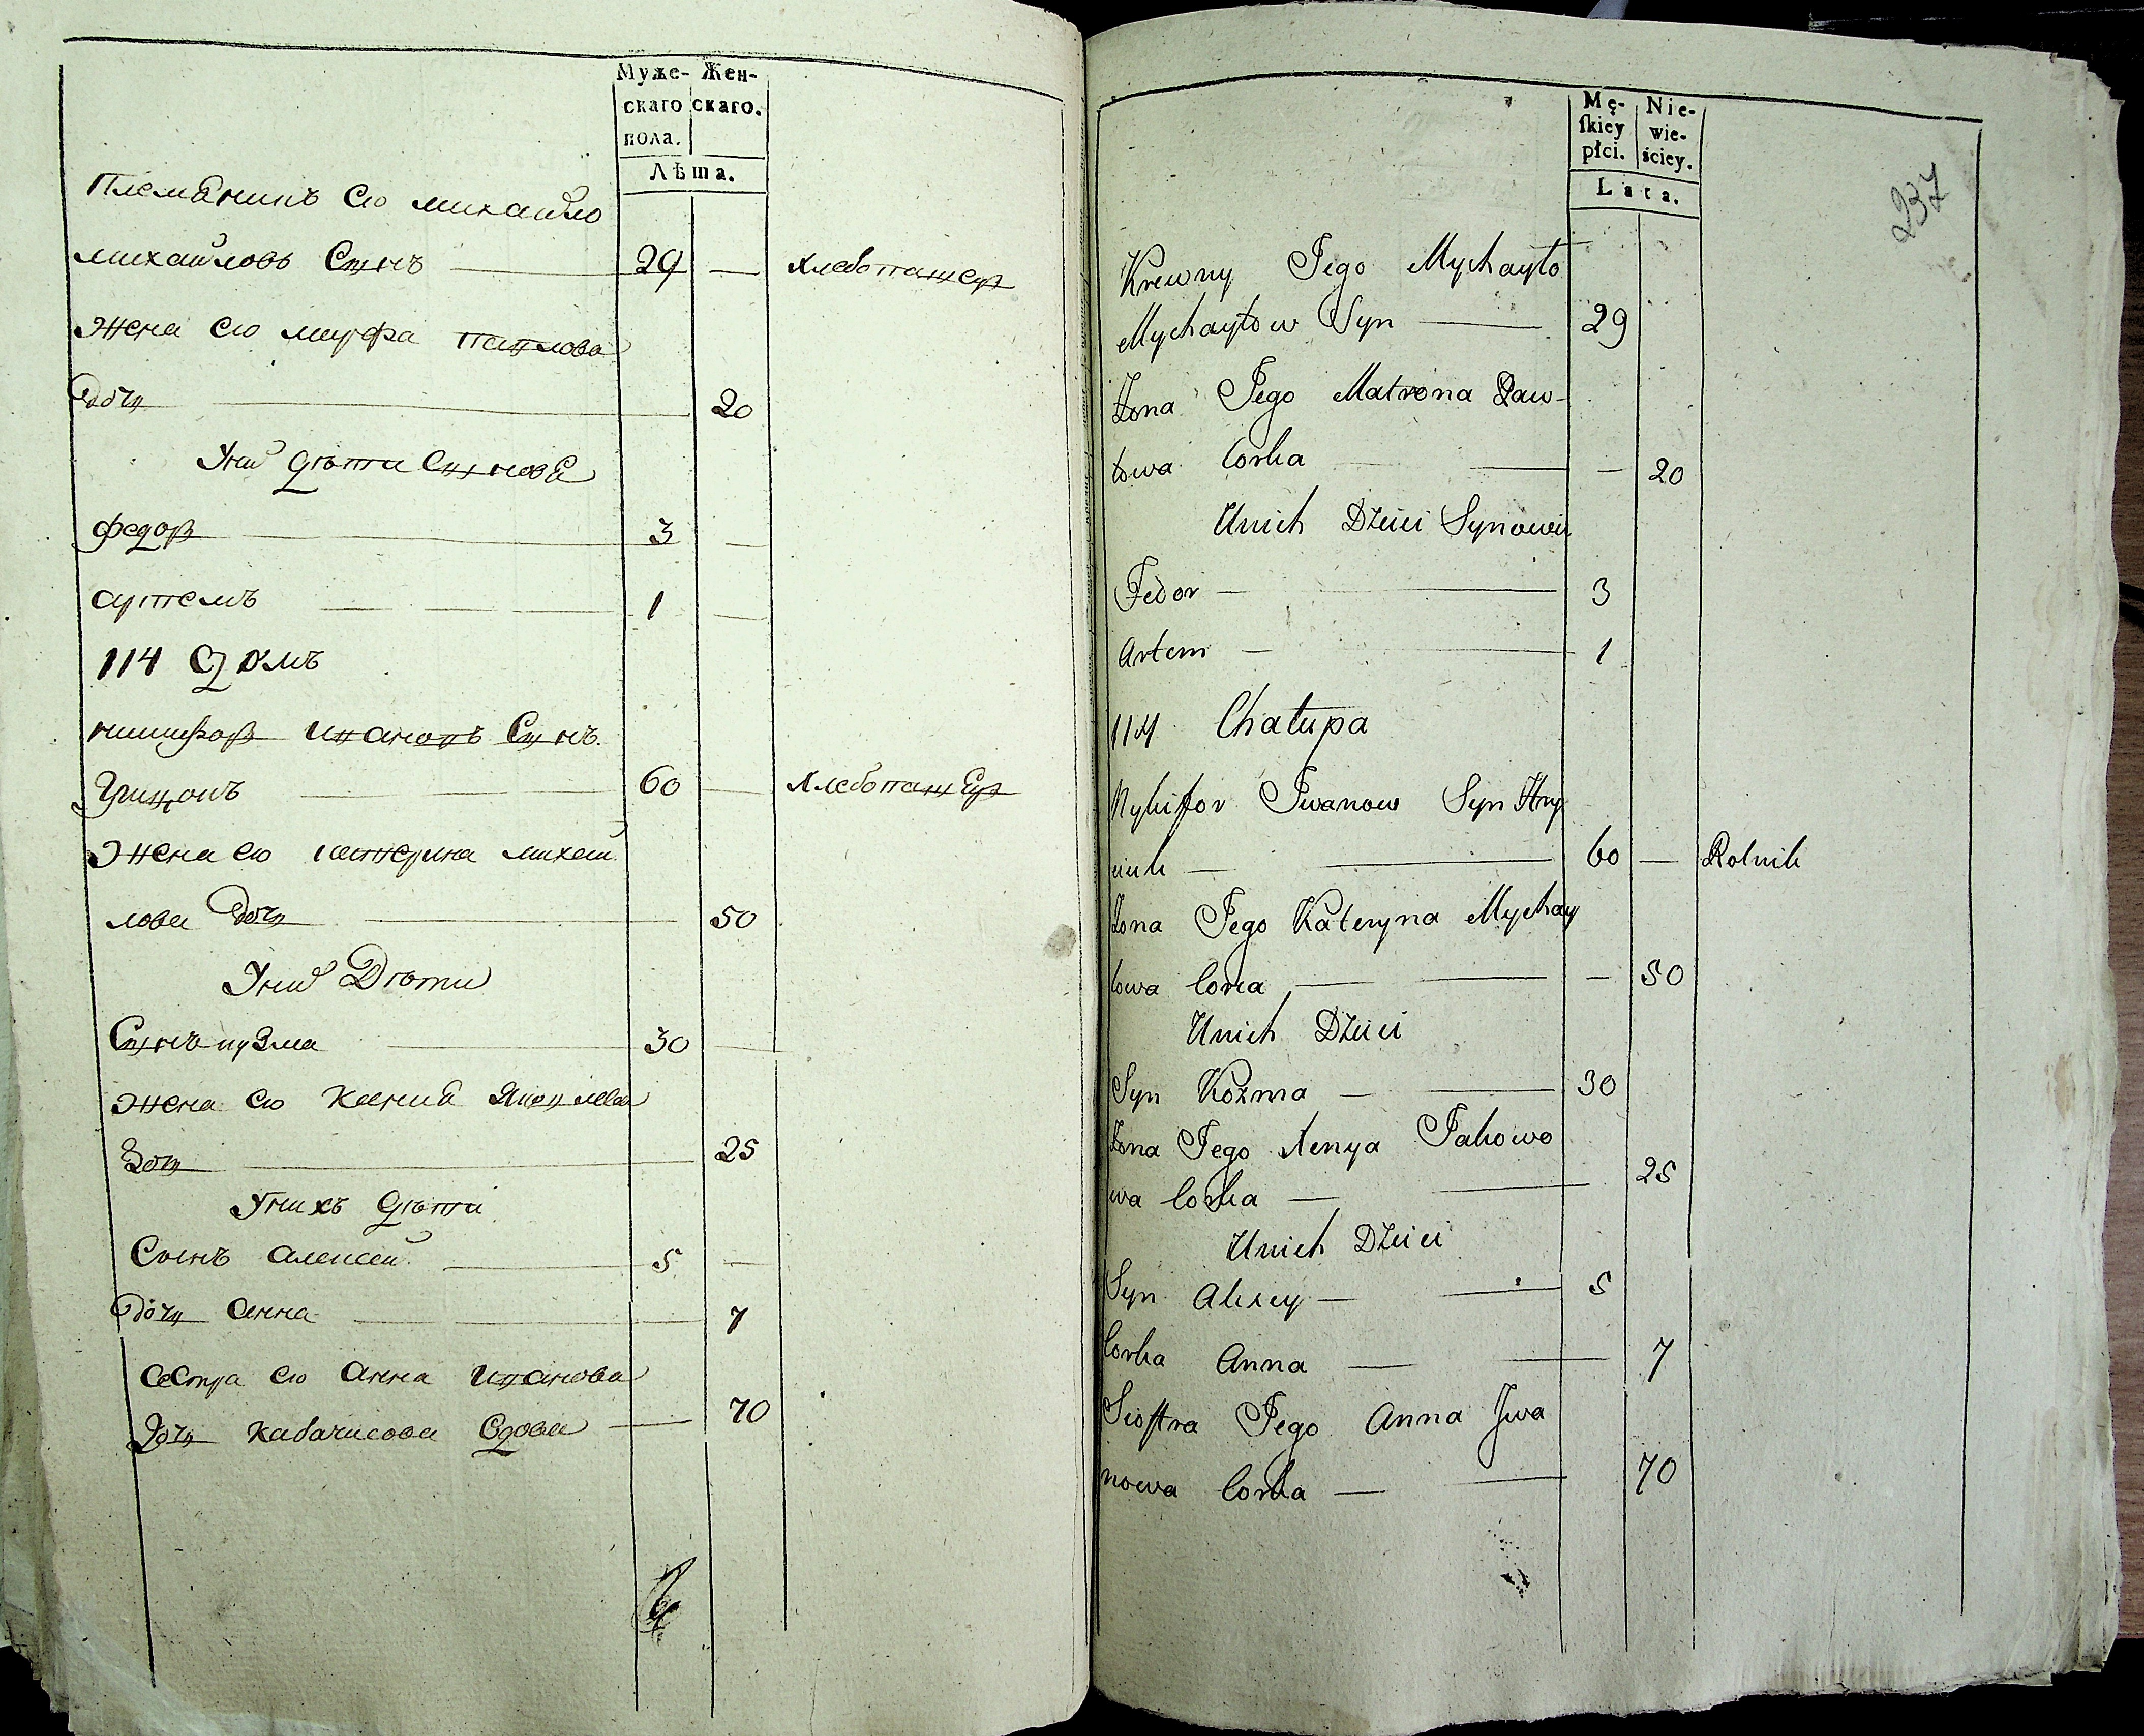 Муже- Жен-
скаго скаго.
пола.
Лѣта.
Племѣникъ его михайло
михайловъ Сынъ 29 — хлебопашецъ
жена его марфа павлова
дочь 20
У них дѣти Сыновѣ
федоръ 3 —
артемъ 1 —
114 домъ
никифоръ ивановъ Сынъ
60 — хлебопашецъ
жена его катерина михай
лова дочь 50
У них Дѣти
Сынъ кузма 30 —
жена его Ксениѣ Яковлева
дочь 25
У нихъ дѣти
Сынъ алексей 5 —
дочь анна 7
сестра его анна иванова
дочь вдова 70
Mę- Nie-
ſkiey wie-
płci. ściey.
Lata.
237
Krewny Jego Mychayło
Mychayłow Syn — 29
Żona Jego Matrona Paw-
łowa Corka — — 20
Unich Dzieci Synowie
Fedor — 3
Artem — 1
114 Chałupa
Nykifor Iwanow Syn Hry
60 — Rolnik
Żona Jego Kateryna Mychay
łowa Corka — — 50
Unich Dzieci
Syn Kozma — 30
Żona Jego Xenya Jakowo
wa Corka — 25
Unich Dzieci
Syn Alexey — 5
Corka Anna — 7
Sioſtra Jego Anna Iwa
nowa Corka — 70